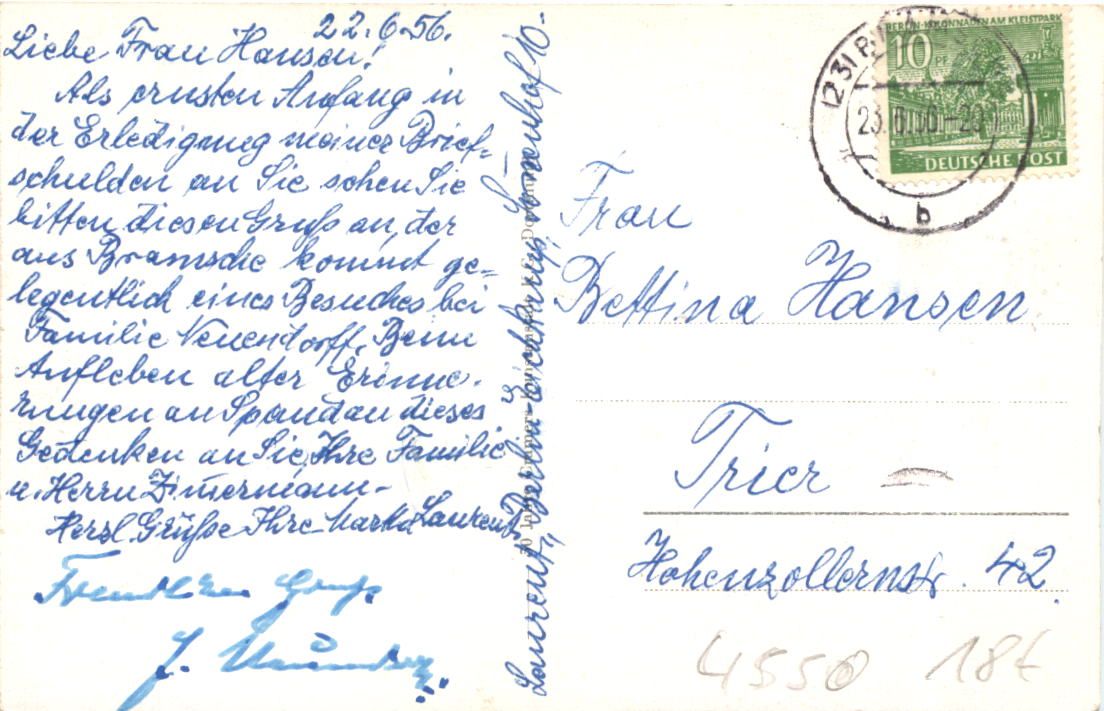 22.6.56.
Liebe Frau Hansen!
Als ernsten Anfang in
der Erledigung meiner Brief-
schulden an Sie sehen Sie
bitten diesen Gruß an, der
aus Bramsche kommt ge-
legentlich eines Besuches bei
Familie Neuendorff. Beim
Aufleben alter Erinne-
rungen an Spandau dieses
Gedenken an Sie, Ihre Familie
u. Herrn Zimermann-
Herzl. Grüße Ihre Marta Laurent.
Freundlichen Gruß
Laurent, Berlin-Eichkamp,
BERLIN-KOLONNADEN AM KLEISTPARK
10 PF
DEUTSCHE POST
23.6.56-20
b
Frau
Bettina Hansen
Trier
Hohenzollernstr. 42
4550 18t